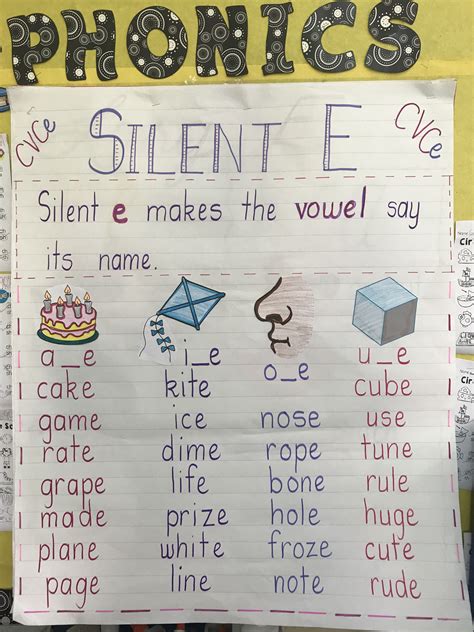 PHONICS
CVCe SILENT E CVCe
Silent e makes the vowel say
its name.
a_e i_e o_e u_e
cake kite cube
game ice nose use
rate dime rope tune
grape life bone rule
made prize hole huge
plane white froze cute
page line note rude